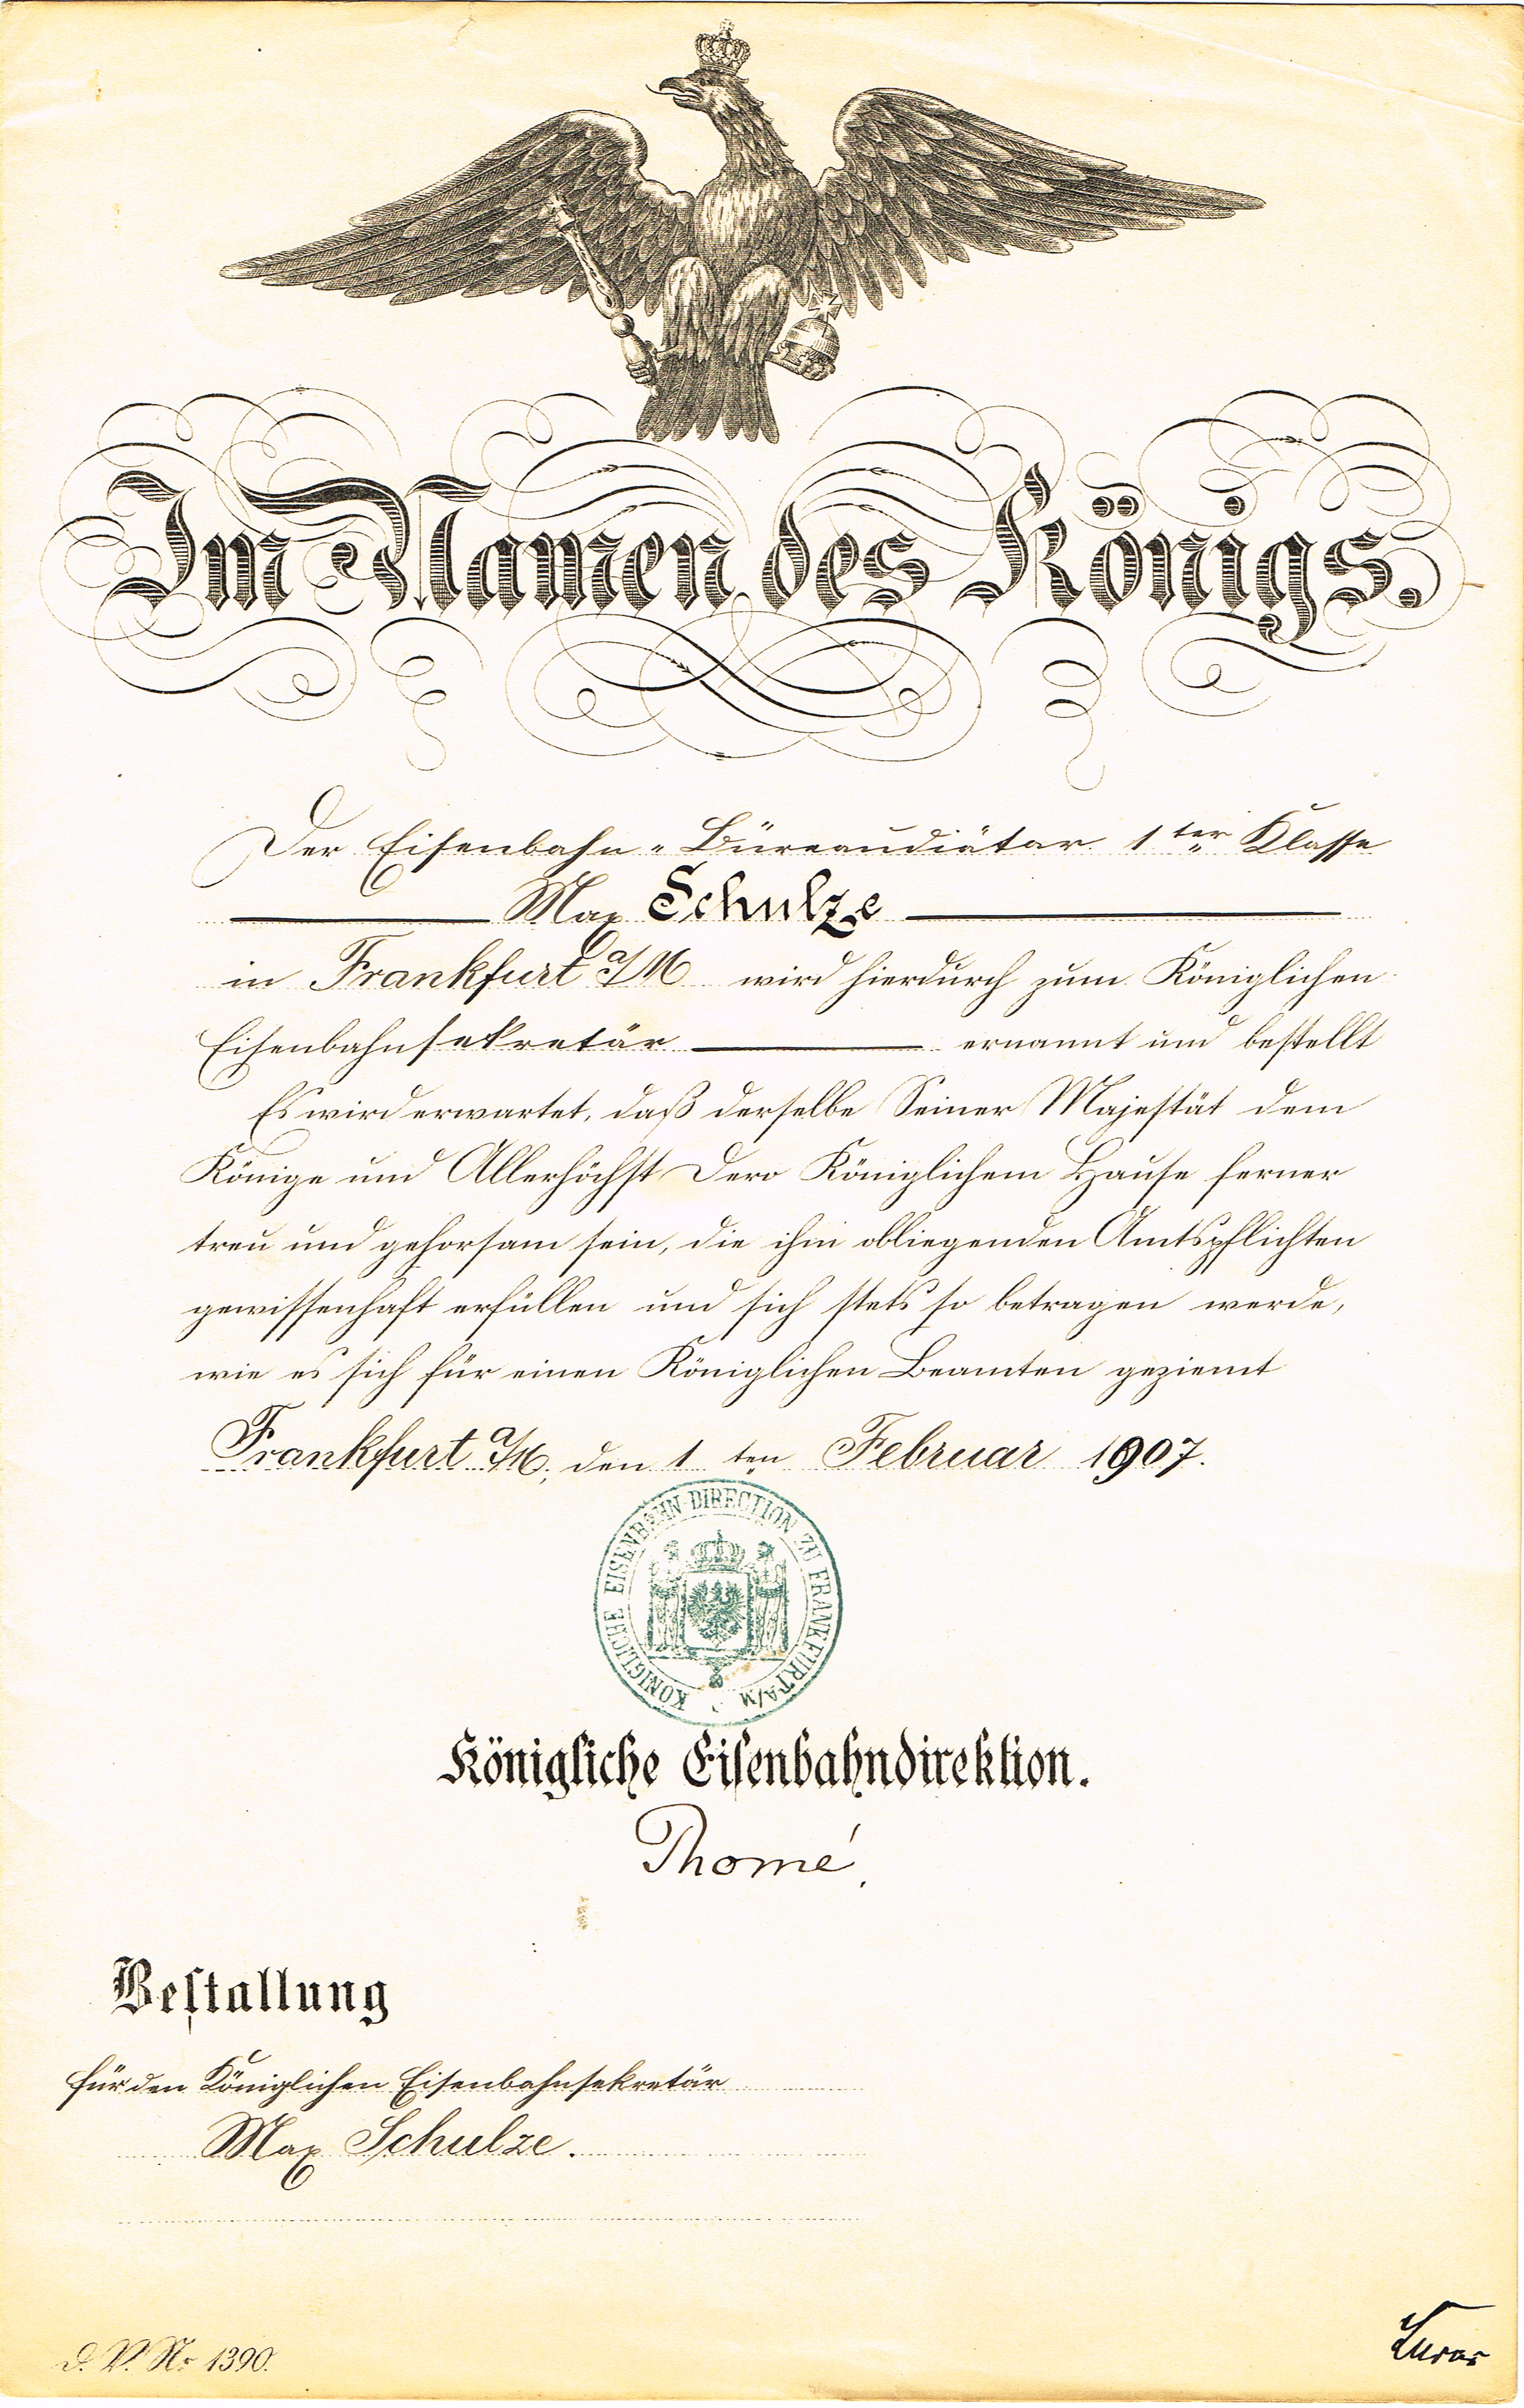 Im Namen des Königs.
Der Eisenbahn-Büreaudiätar 1ter Klasse
Max Schulze
in Frankfurt a/M wird hierdurch zum Königlichen
Eisenbahnsekretär ernannt und bestellt
Es wird erwartet, daß derselbe Seiner Majestät dem
Könige und Allerhöchst Dero Königlichem Hause ferner
treu und gehorsam sein, die ihm obliegenden Amtspflichten
gewissenhaft erfüllen und sich stets so betragen werde,
wie es sich für einen Königlichen Beamten geziemt
Frankfurt a/M, den 1ten Februar 1907.
KÖNIGLICHE EISENBAHN-DIRECTION ZU FRANKFURT A/M
Königliche Eisenbahndirektion.
Thomé.
Bestallung
für den Königlichen Eisenbahnsekretär
Max Schulze.
d. V. No 1390.